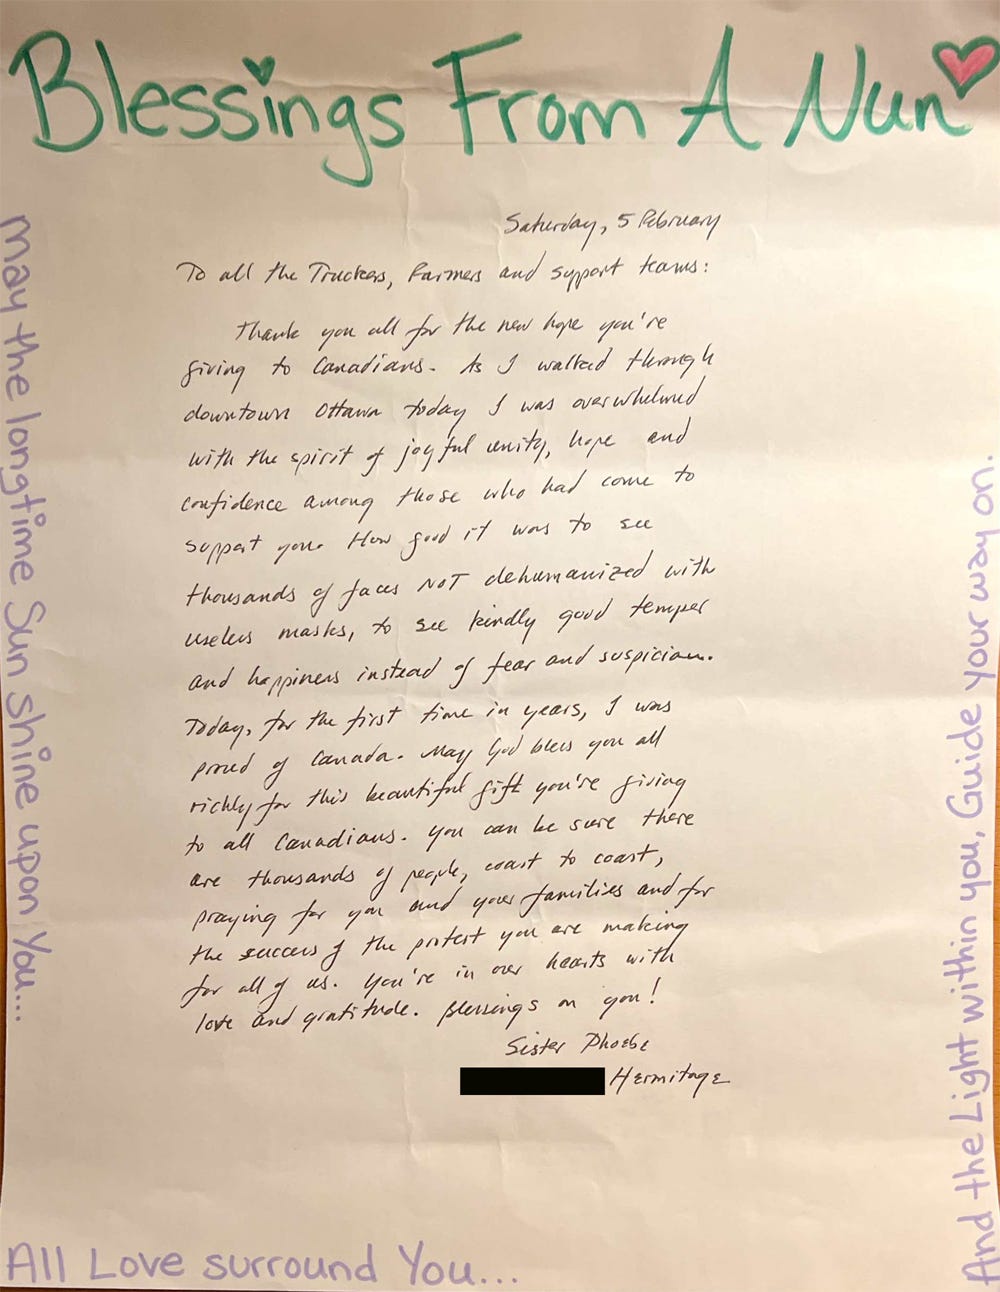 Blessings From A Nun
Saturday, 5 February
To all the Truckers, Farmers and support teams:
Thank you all for the new hope you're
giving to Canadians. As I walked through
downtown Ottawa today I was overwhelmed
with the spirit of joyful unity, hope and
confidence among those who had come to
support you. How good it was to see
thousands of faces NOT dehumanized with
useless masks, to see kindly good temper
and happiness instead of fear and suspicion.
Today, for the first time in years, I was
proud of Canada. May God bless you all
richly for this beautiful gift you're giving
to all Canadians. You can be sure there
are thousands of people, coast to coast,
praying for you and your families and for
the success of the protest you are making
for all of us. You're in our hearts with
love and gratitude. Blessings on you!
Sister Phoebe
Hermitage
May the longtime Sun shine upon You...
All Love surround You...
And the Light within you, Guide your way on.